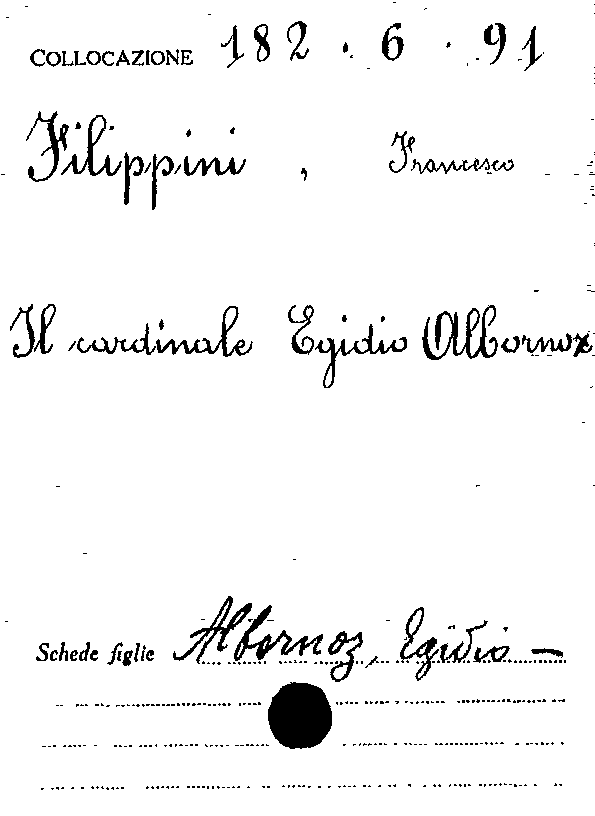 COLLOCAZIONE 182 . 6 . 91
Filippini , Francesco
Il cardinale Egidio Albornoz
Schede figlie Albornoz, Egidio —